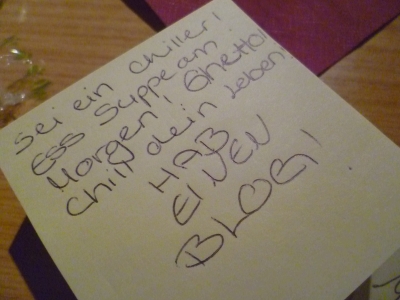 sei ein chiller!
ESS Suppe am
Morgen! Ghetto!
Chill dein Leben!
HAB
EINEN
BLOG!